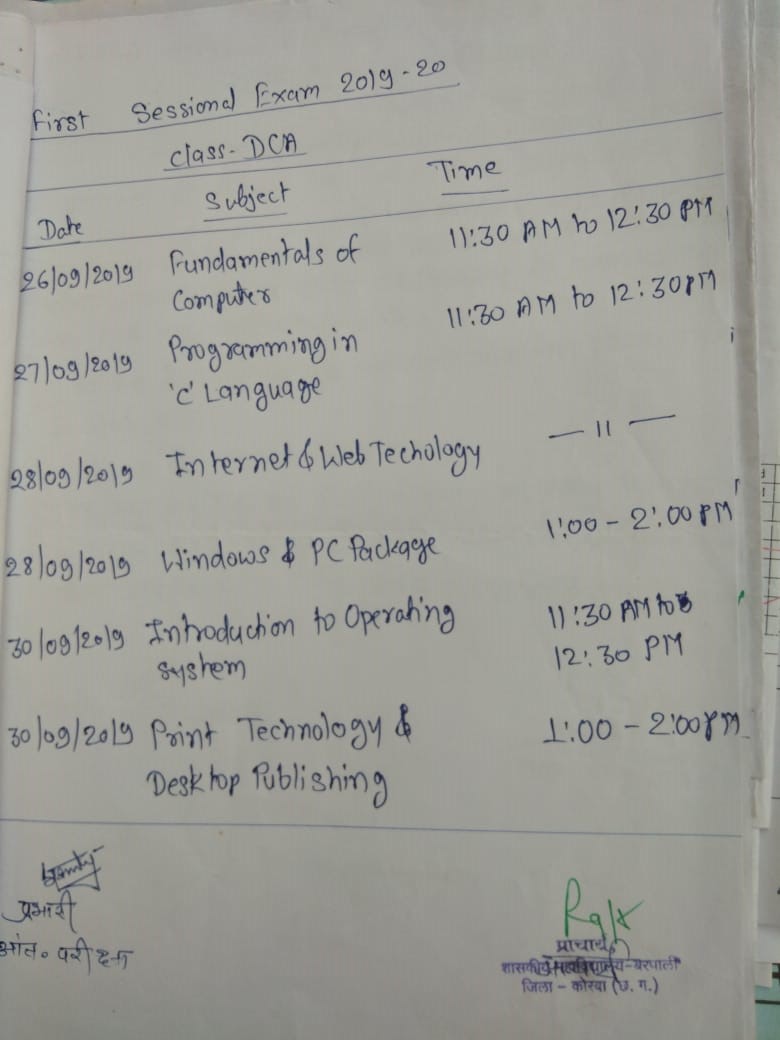 First Sessional Exam 2019-20
Class-DCA
Date Subject Time
26/09/2019 Fundamentals of 11:30 AM to 12:30 PM
Computer
27/09/2019 Programming in 11:30 AM to 12:30PM
'C' Language
28/09/2019 Internet & Web Techology — 11 —
28/09/2019 Windows & PC Package 1:00 - 2:00 PM
30/09/2019 Introduction to Operating 11:30 AM to
System 12:30 PM
30/09/2019 Print Technology & 1:00 - 2:00PM
Desktop Publishing
प्रभारी
आंत. परीक्षा
प्राचार्य
शासकीय महाविद्यालय-बरपाली
जिला - कोरबा (छ. ग.)